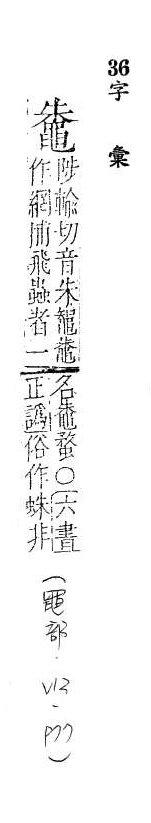 36字 彙
鼄
陟輸切音朱鼅鼄
作網捕飛蟲者一
名鼄蝥○六書
正譌俗作蛛非
(黽部.V13.P77)